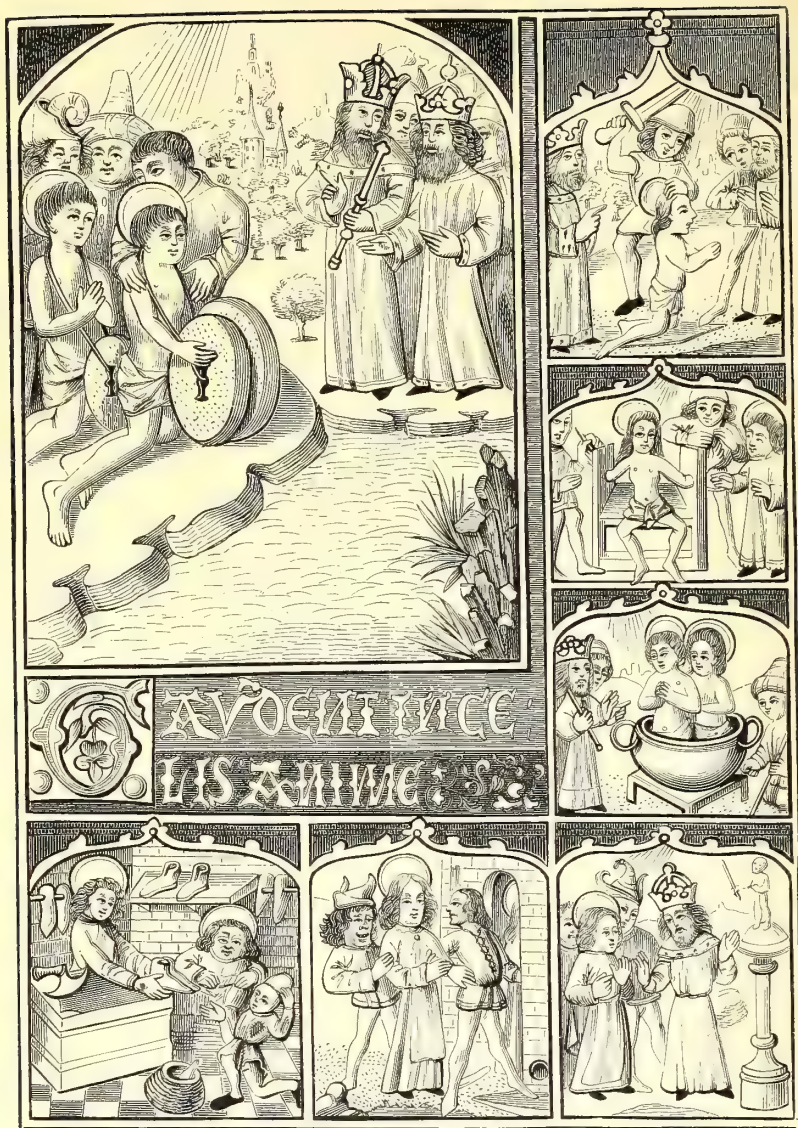 GAVDENT IN CE
LIS ANIME : S